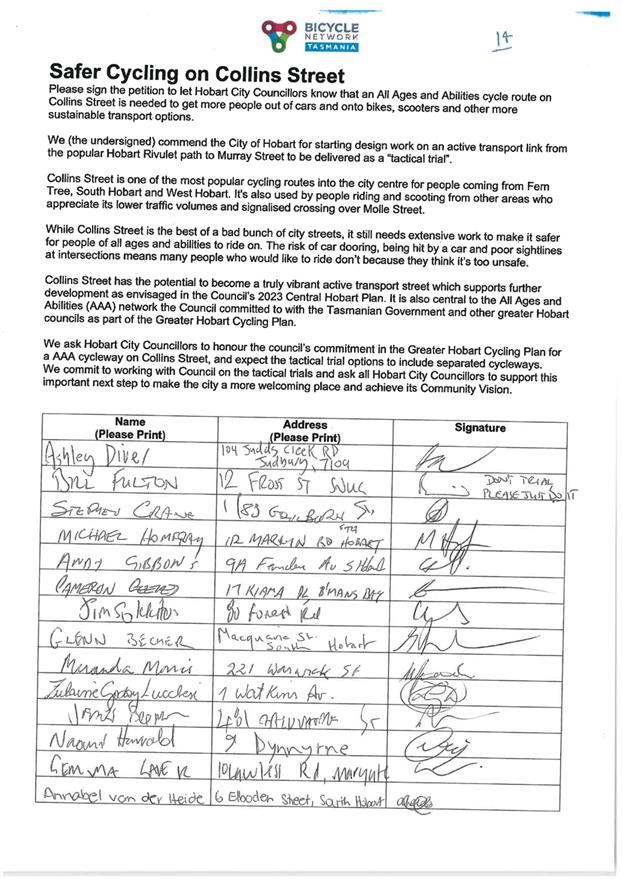 BICYCLE
NETWORK
TASMANIA
14
Safer Cycling on Collins Street
Please sign the petition to let Hobart City Councillors know that an All Ages and Abilities cycle route on
Collins Street is needed to get more people out of cars and onto bikes, scooters and other more
sustainable transport options.
We (the undersigned) commend the City of Hobart for starting design work on an active transport link from
the popular Hobart Rivulet path to Murray Street to be delivered as a "tactical trial".
Collins Street is one of the most popular cycling routes into the city centre for people coming from Fern
Tree, South Hobart and West Hobart. It's also used by people riding and scooting from other areas who
appreciate its lower traffic volumes and signalised crossing over Molle Street.
While Collins Street is the best of a bad bunch of city streets, it still needs extensive work to make it safer
for people of all ages and abilities to ride on. The risk of car dooring, being hit by a car and poor sightlines
at intersections means many people who would like to ride don't because they think it's too unsafe.
Collins Street has the potential to become a truly vibrant active transport street which supports further
development as envisaged in the Council's 2023 Central Hobart Plan. It is also central to the All Ages and
Abilities (AAA) network the Council committed to with the Tasmanian Government and other greater Hobart
councils as part of the Greater Hobart Cycling Plan.
We ask Hobart City Councillors to honour the council's commitment in the Greater Hobart Cycling Plan for
a AAA cycleway on Collins Street, and expect the tactical trial options to include separated cycleways.
We commit to working with Council on the tactical trials and ask all Hobart City Councillors to support this
important next step to make the city a more welcoming place and achieve its Community Vision.
Name
(Please Print)
Address
(Please Print)
Signature
Ashley
104
RD
7109
FULTON
12 FROST ST
DON'T TRIAL
PLEASE JUST DO IT
STEPHEN CRANE
1/83
ST
MICHAEL HOMFRAY
RD HOBART
ANDY GIBBONS
9A Av S
CAMERON
17 KIAMA PL B'MANS BAY
Jim
Forest Rd
GLENN BECHER
Macquarie St.
South Hobart
Miranda Morris
221 Warwick St
Lucchesi
1 Watkins Av.
James
St
Naomi
9 Dynnyrne
GEMMA LAVER
Rd,
Annabel van der Heide
6 Elboden Street, South Hobart